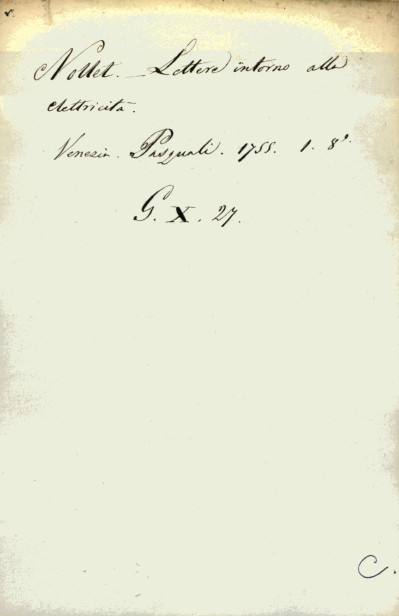 Nollet. _ Lettere intorno alla
elettricità.
Venezia. Pasquali. 1755. 1. 8º.
G. X. 27.
C.